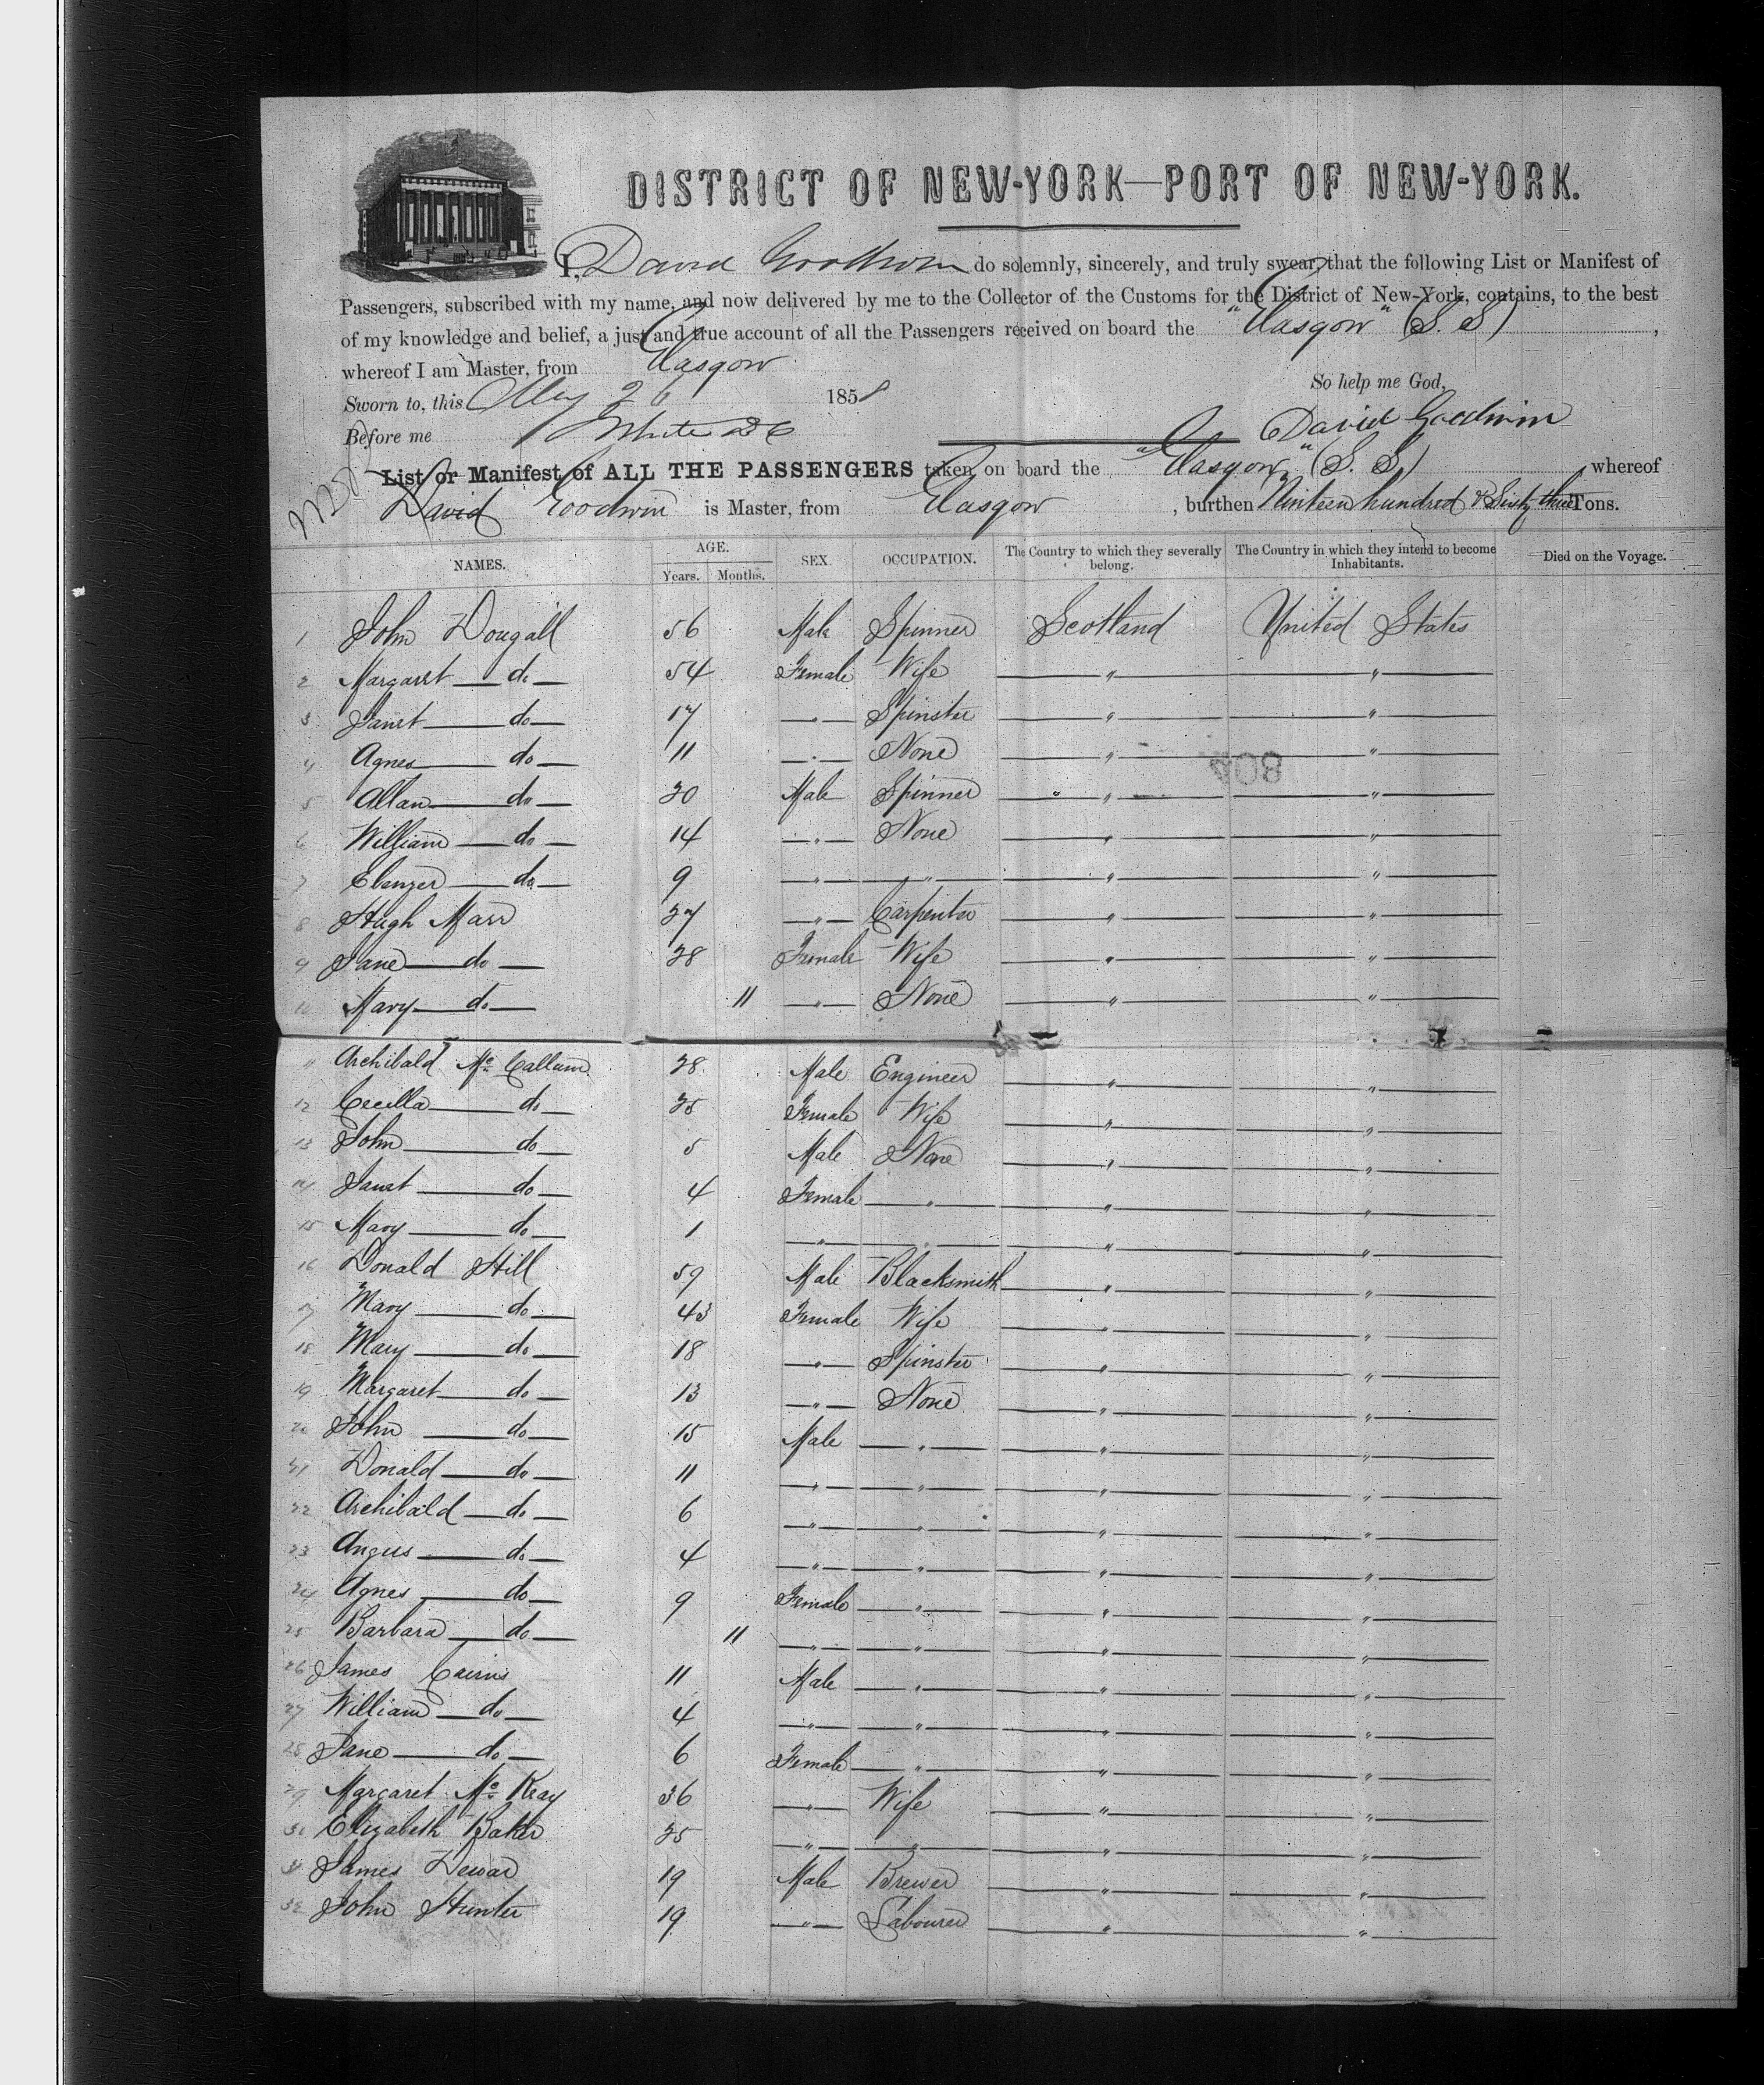 DISTRICT OF NEW-YORK—PORT OF NEW-YORK.
I, David Goodwin do solemnly, sincerely, and truly swear, that the following List or Manifest of
Passengers, subscribed with my name, and now delivered by me to the Collector of the Customs for the District of New-York, contains, to the best
of my knowledge and belief, a just and true account of all the Passengers received on board the "Glasgow" (S. S) ,
whereof I am Master, from Glasgow
So help me God,
Sworn to, this May 26 1858
David Goodwin
Before me White DC
List or Manifest of ALL THE PASSENGERS taken on board the "Glasgow" (S. S) whereof
David Goodwin is Master, from Glasgow , burthen Ninteen hundred & Sixty three Tons.
NAMES. AGE. Years. Months. SEX. OCCUPATION. The Country to which they severally belong. The Country in which they intend to become Inhabitants. Died on the Voyage.
1 John Dougall 56 Male Spinner Scotland United States
2 Margaret — do — 54 Female Wife " "
3 Janet — do — 17 " Spinster " "
4 Agnes — do — 11 " None " "
408
5 Allan — do — 20 Male Spinner " "
6 William — do — 14 " None " "
7 Ebenzer — do — 9 " " " "
8 Hugh Marr 27 " Carpenter " "
9 Jane — do — 28 Female Wife " "
10 Mary — do — 11 " None " "
11 Archibald Mc Callum 28 Male Engineer " "
12 Cecilla — do — 25 Female Wife " "
13 John — do — 5 Male None " "
14 Janet — do — 4 Female " " "
15 Mary — do — 1 " " " "
16 Donald Hill 59 Male Blacksmith " "
17 Mary — do — 43 Female Wife " "
18 Mary — do — 18 " Spinster " "
19 Margaret — do — 13 " None " "
20 John — do — 15 Male " " "
21 Donald — do — 11 " " " "
22 Archibald — do — 6 " " " "
23 Angus — do — 4 " " " "
24 Agnes — do — 9 Female " " "
25 Barbara — do — 11 " " " "
26 James Cairns 11 Male " " "
27 William — do — 4 " " " "
28 Jane — do — 6 Female " " "
29 Margaret Mc Keay 36 " Wife " "
30 Elizabeth Baker 25 " " " "
31 James Dewar 19 Male Brewer " "
32 John Hunter 19 " Labourer " "